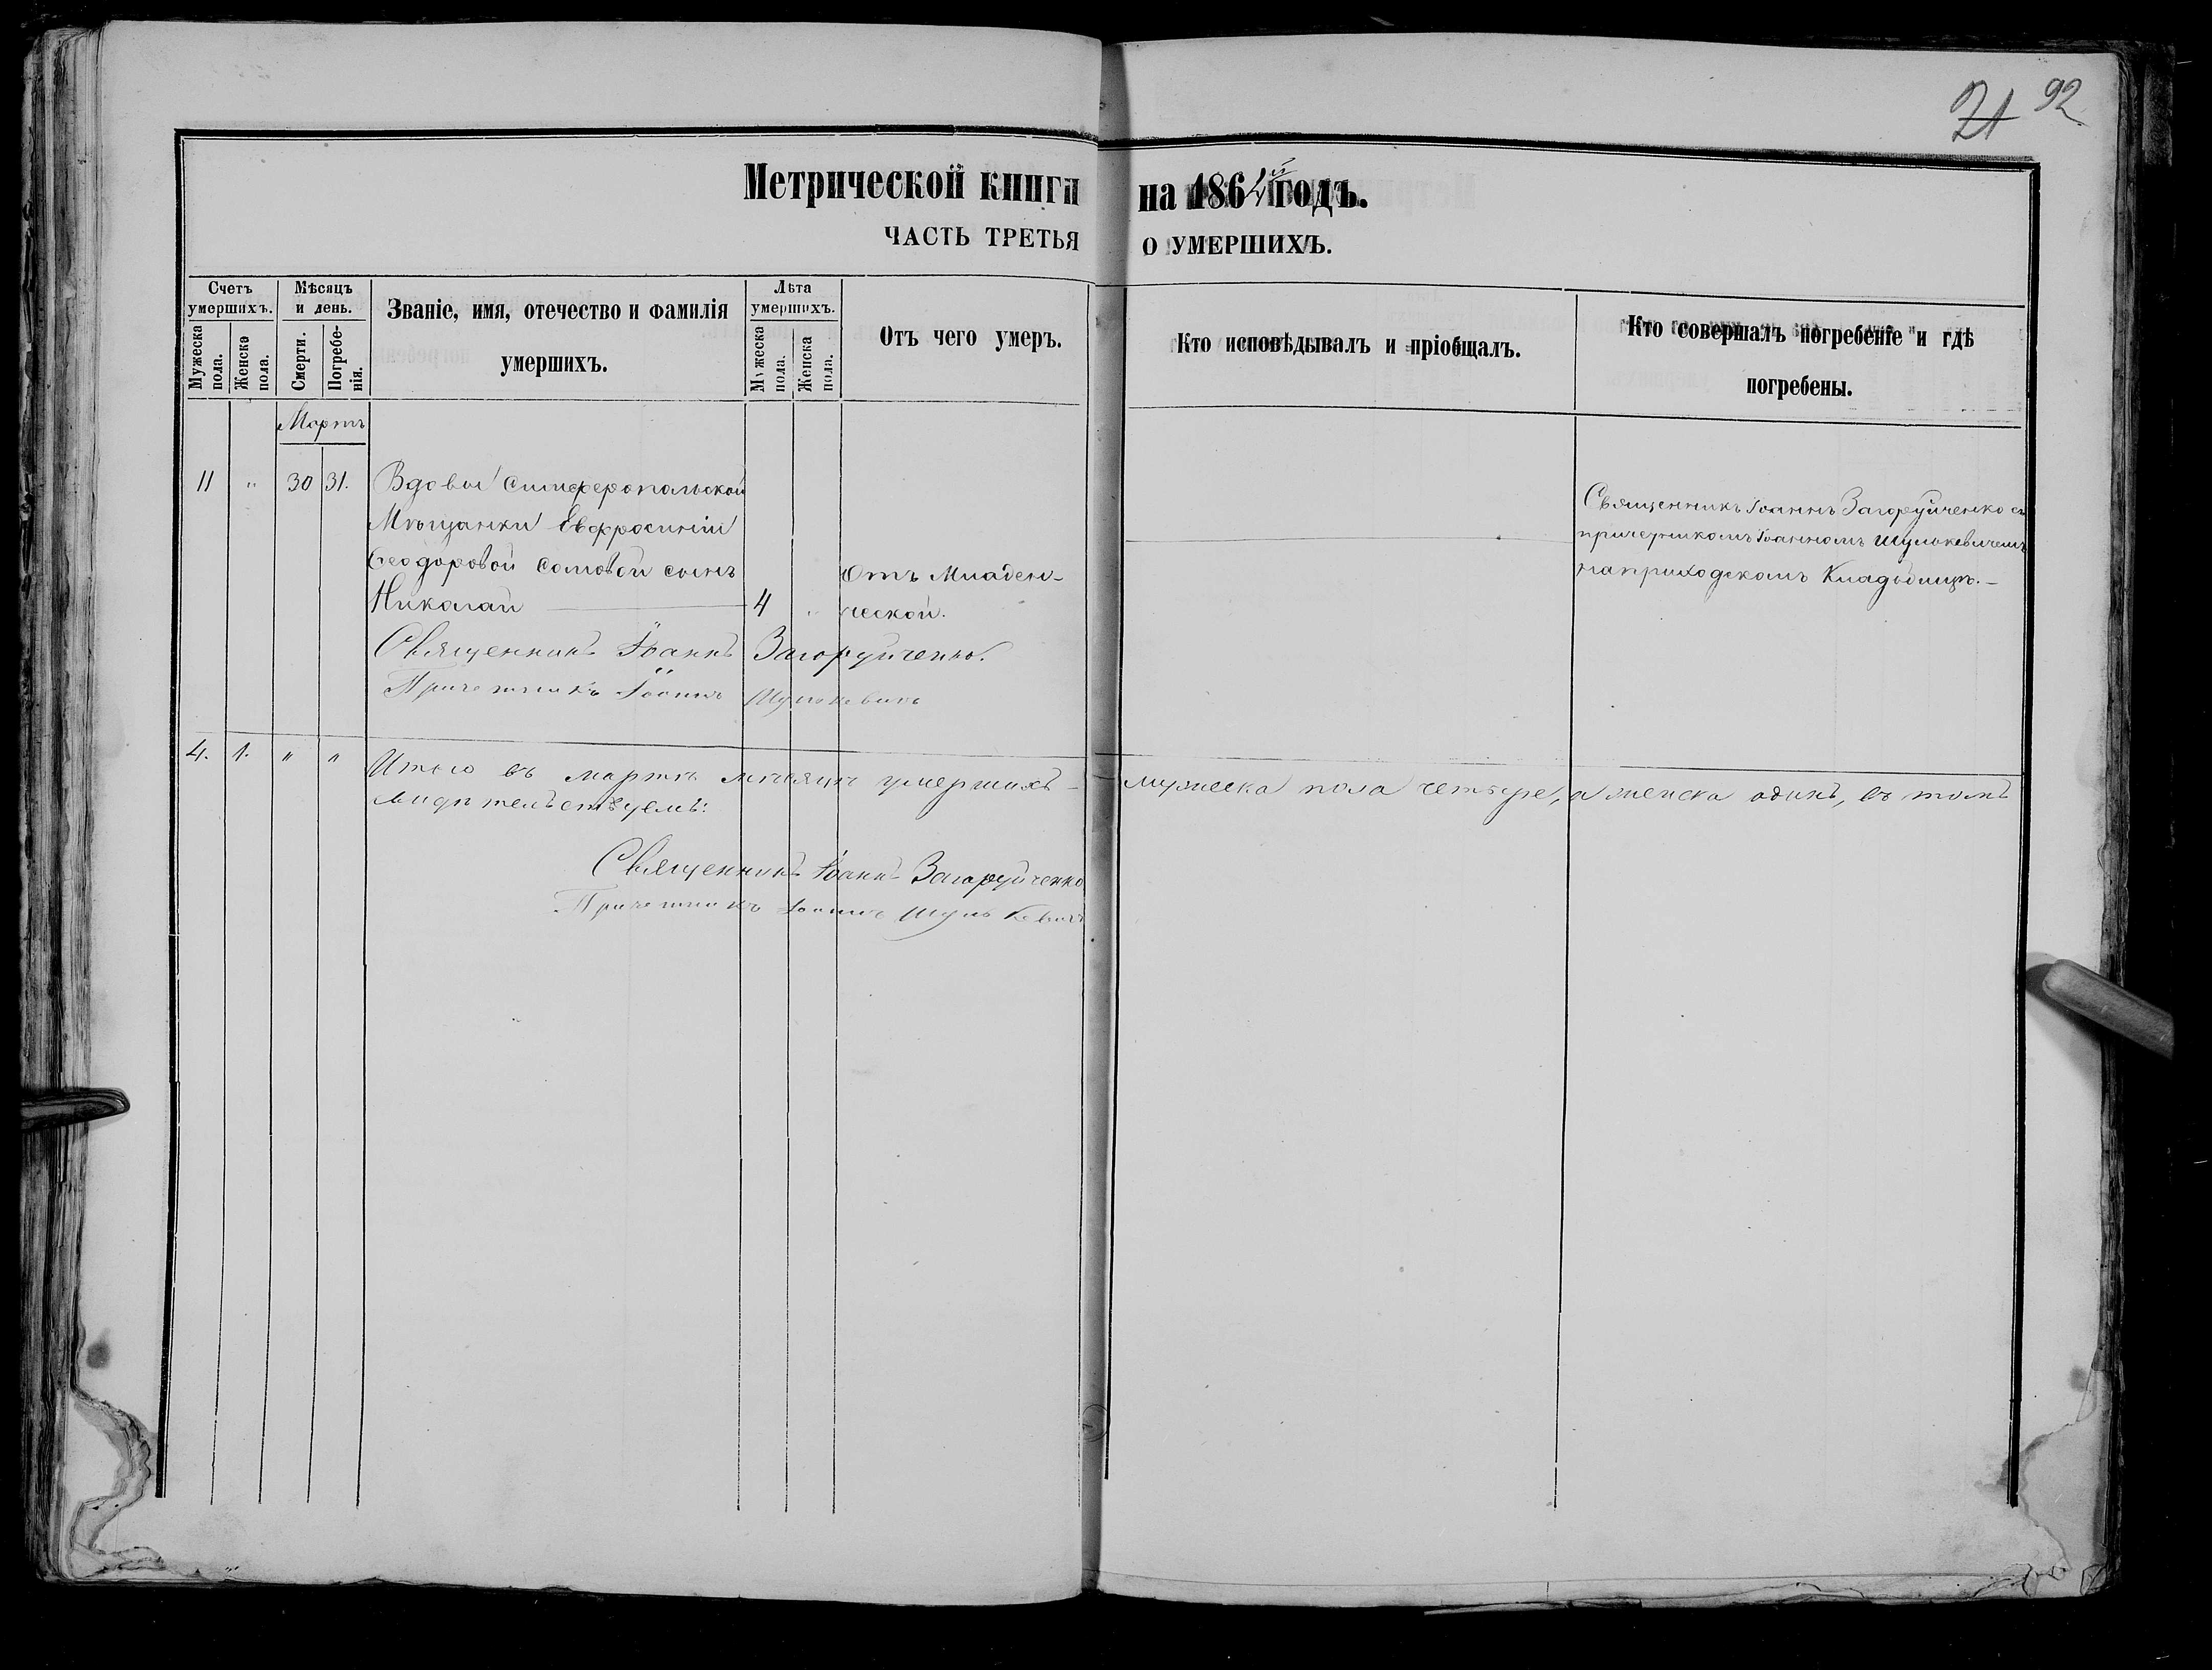 21 92
Метрической книги на 1864й годъ.
ЧАСТЬ ТРЕТЬЯ О УМЕРШИХЪ.
Счетъ умершихъ.
Мужеска пола.
Женска пола.
Мѣсяцъ и день.
Смерти.
Погребенія.
Званіе, имя, отечество и фамилія
умершихъ.
Лѣта умершихъ.
Мужеска пола.
Женска пола.
Отъ чего умеръ.
Кто исповѣдывалъ и пріобщалъ.
Кто совершалъ погребеніе и гдѣ
погребены.
Мартъ
11 " 30 31. Вдовы симферопольской
Мѣщанки Евфросиніи
Ѳеодоровой сомовой сынъ
Николай 4 "
Отъ Младен-
ческой.
Священникъ Іоаннъ Загоруйченко съ
причетникомъ Іоанномъ Шулькевичемъ
на приходскомъ Кладбищѣ.
Священникъ Іоаннъ Загоруйченко.
Причетникъ Іоаннъ Шулькевичъ
4. 1. " " Итого въ мартѣ мѣсяцѣ умершихъ - мужеска пола четыре, а женска одинъ, въ томъ
свидѣтельствуемъ:
Священникъ Іоаннъ Загоруйченко
Причетникъ Іоаннъ Шулькевичъ